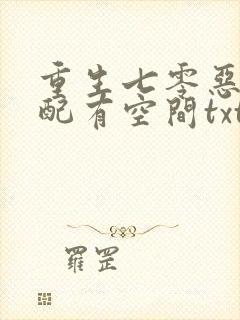 重生七零惡
配有空間txt
羅罡